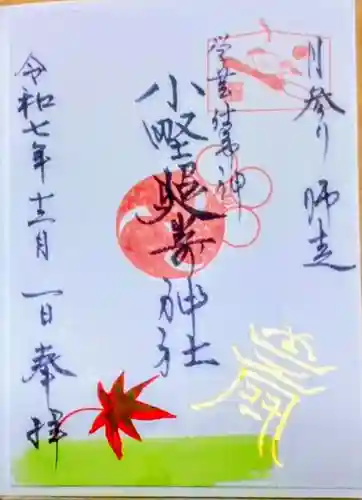 月参り 師走
学芸結弟神
小野照崎神社
令和七年十二月 一日奉拝